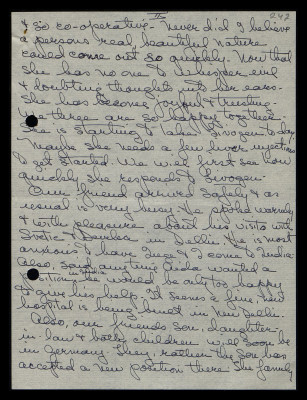 II
242
& so co-operative - Never did I believe
a persons real beautiful nature
could come out so quickly. Now that
she has no one to whisper evil
& doubting thoughts into her ears.
She has become joyful & trusting.
We three are so happy together.
She is starting to take Bivogen today.
Maybe she needs a few liver injections
to get started. We will first see how
quickly she responds to Bivogen.
Our friend arrived safely & as
usual is very busy. He spoke warmly
& with pleasure about his visits with
Svetic & in Delhi. He is most
anxious to have Inga & I come to India
Also, said anytime Indra wanted a
position in India he would be only too happy
to give his help. It seems a fine, new
hospital is being built in New Delhi.
Also, our friends son, daughter-
in-law & both children will soon be
in Germany. They, rather the son has
accepted a new position there. The family